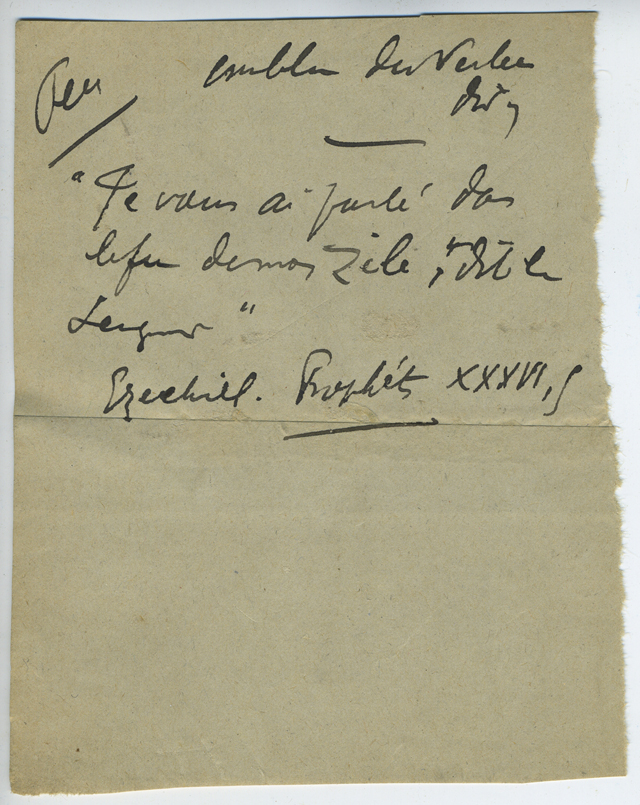 Feu emblème du Verbe
divin
"Je vous ai parlé dans
le feu de mon Zèle", dit le
Seigneur"
Ezechiel. Prophét XXXVI, 5